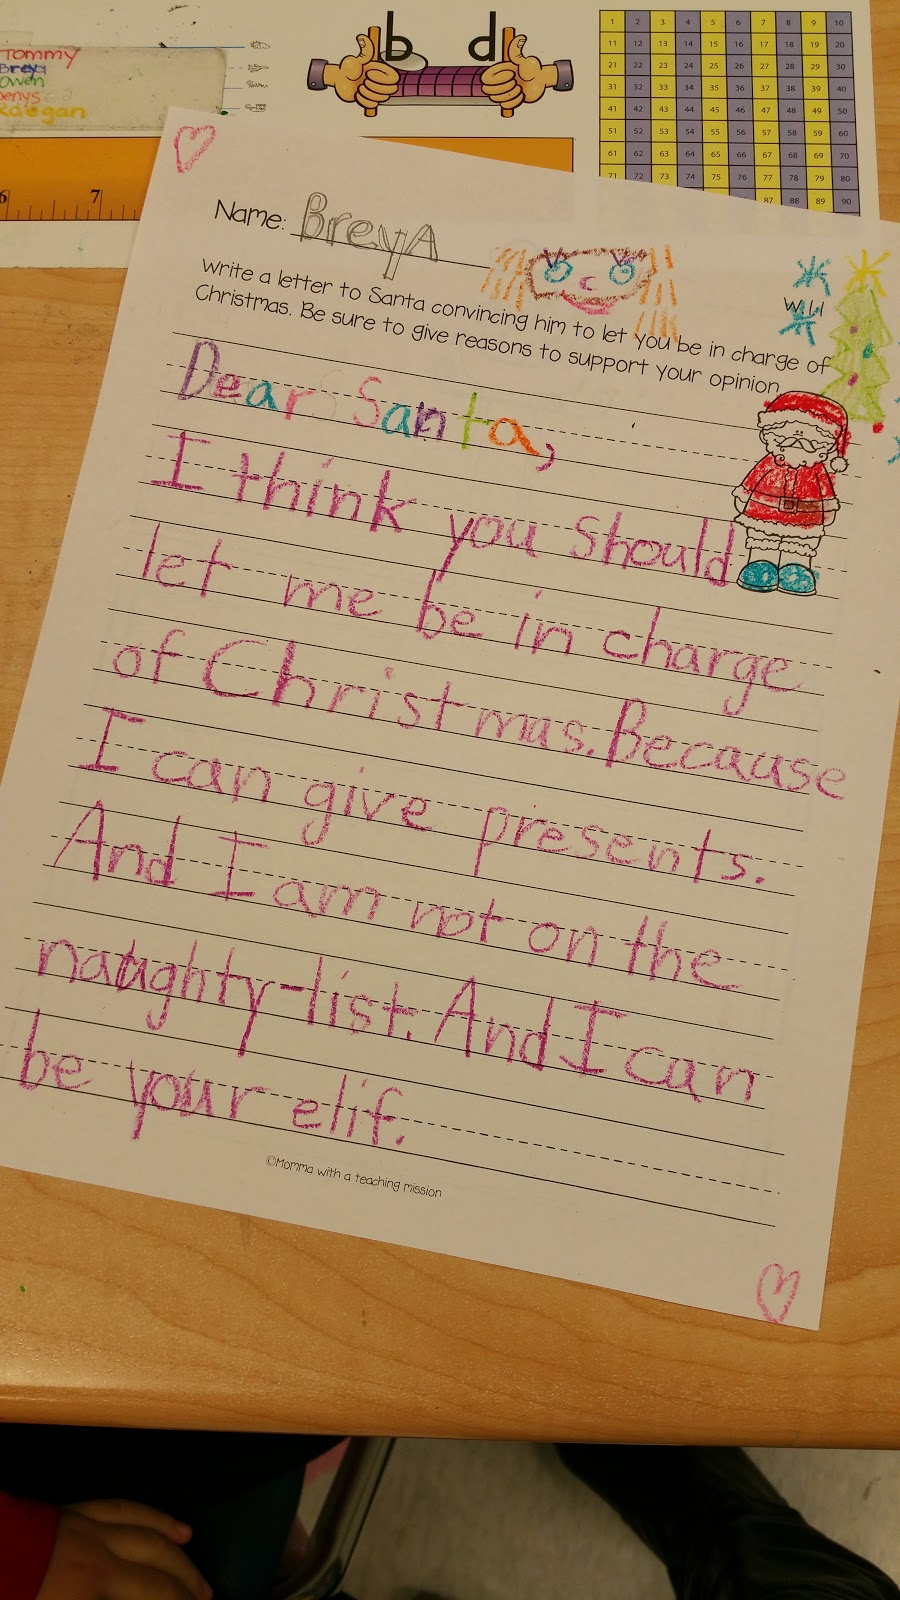 Tommy
Breya
Owen
Denys
Raegan
b d
1 2 3 4 5 6 7 8 9 10
11 12 13 14 15 16 17 18 19 20
21 22 23 24 25 26 27 28 29 30
31 32 33 34 35 36 37 38 39 40
41 42 43 44 45 46 47 48 49 50
51 52 53 54 55 56 57 58 59 60
61 62 63 64 65 66 67 68 69 70
71 72 73 74 75 76 77 78 79 80
87 88 89 90
6 7
Name: BreyA
Write a letter to Santa convincing him to let you be in charge of
Christmas. Be sure to give reasons to support your opinion
Dear Santa,
I think you should
let me be in charge
of Christmas. Because
I can give presents.
And I am not on the
naughty-list. And I can
be your elif.
©Momma with a teaching mission